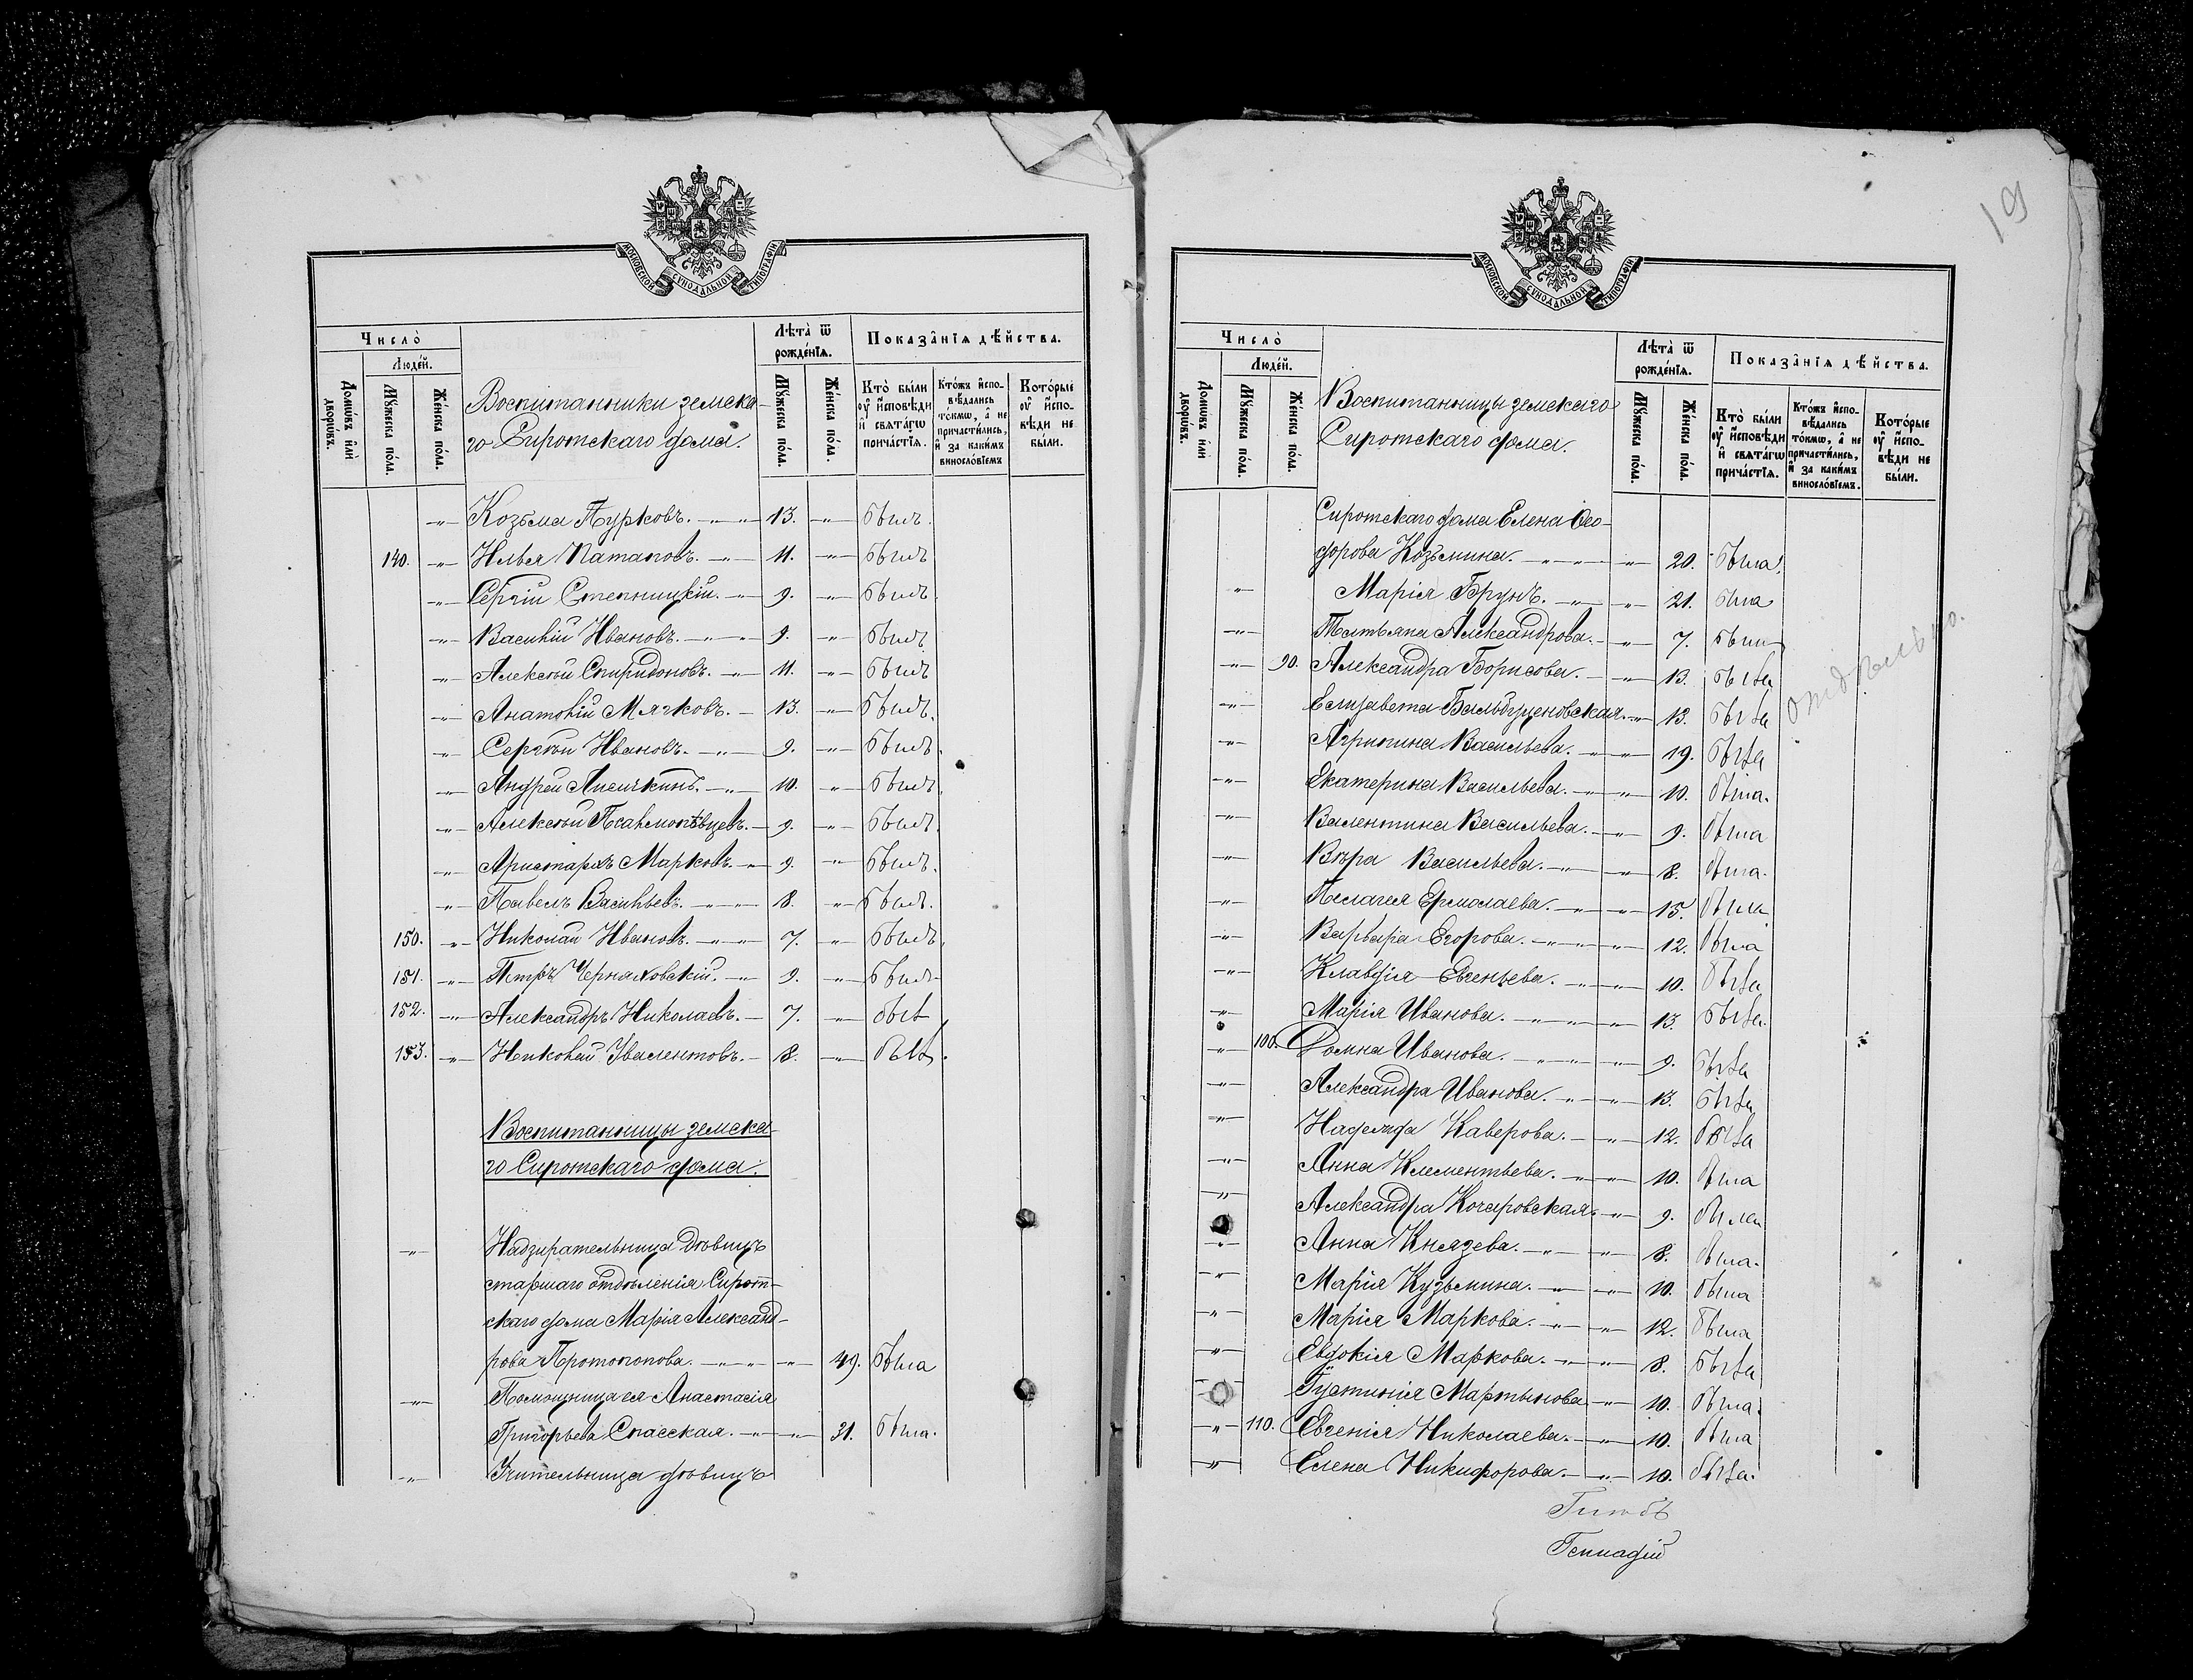 МОСКОВСКОЙ СѴНОДАЛЬНОЙ ТИПОГРАФІИ
Число̀
Людéй.
Домѡ́въ и҆лѝ дворѡ́въ.
Мꙋ́жеска по́ла.
Же́нска по́ла.
Воспитанники земска-
го Сиротскаго дома.
Лѣ́та ѿ рожде́нїѧ.
Мꙋ́жеска по́ла.
Же́нска по́ла.
Показа̑нїѧ дѣ́йства.
Кто̀ бы́ли ᲂу҆ и҆́сповѣди и҆ свѧта́гѡ прича́стїѧ.
Кто́жъ и҆спо-
вѣ́дались то́кмѡ, а҆ не причасти́лись, и҆ за каки́мъ винослóвїемъ
Кото́рые ᲂу҆ и҆́спо-
вѣди не бы́ли.
-„- Козьма Пурковъ. -„- 13. -„- былъ.
140. -„- Илья Патаповъ. -„- 11. -„- былъ
-„- Сергій Степницкій. -„- 9. -„- былъ
-„- Василій Ивановъ. -„- 9. -„- былъ
-„- Алексѣй Спиридоновъ. -„- 11. -„- былъ
-„- Анатолій Мячковъ. - 13. -„- былъ.
-„- Сергѣй Ивановъ. -„- 9. -„- былъ.
-„- Андрей Лисичкинъ. -„- 10. -„- былъ.
-„- Алексѣй Псалмопѣвцевъ. - 9. -„- былъ.
-„- Аристархъ Марковъ. -„- 9. -„- былъ.
-„- Павелъ Васильевъ. -„- 8. -„- былъ.
150. -„- Николай Ивановъ. -„- 7. -„- былъ.
151. -„- Петръ Черняховскій. -„- 9. -„- былъ
152. -„- Александръ Николаевъ. - 7. -„- былъ
153. -„- Николай Увалентовъ. - 8. -„- былъ.
Воспитанницы земска-
го Сиротскаго дома.
-„- Надзирательница дѣвицъ
старшаго отдѣленія Сирот-
скаго дома Марія Александ-
рова Протопопова. -„- -„- 49. была
-„- Помощница ея Анастасія
Григорьева Спасская. -„- -„- 31. была.
-„- Учительница дѣвицъ
19
МОСКОВСКОЙ СѴНОДАЛЬНОЙ ТИПОГРАФІИ
Число̀
Людéй.
Домѡ́въ и҆лѝ дворѡ́въ.
Мꙋ́жеска по́ла.
Же́нска по́ла.
Воспитанницы земскаго
Сиротскаго дома.
Лѣ́та ѿ рожде́нїѧ.
Мꙋ́жеска по́ла.
Же́нска по́ла.
Показа̑нїѧ дѣ́йства.
Кто̀ бы́ли ᲂу҆ и҆́сповѣди и҆ свѧта́гѡ прича́стїѧ.
Кто́жъ и҆спо-
вѣ́дались то́кмѡ, а҆ не причасти́лись, и҆ за каки́мъ винослóвїемъ.
Кото́рые ᲂу҆ и҆́спо-
вѣди не бы́ли.
Сиротскаго дома Елена Ѳео-
дорова Козьмина. -„- -„- 20. была.
-„- Марія Брунъ. -„- -„- 21. была
-„- Татьяна Александрова. -„- 7. была
-„- 90. Александра Борисова. -„- 13. была
отдѣльно.
-„- Елизавета Вальдуценовская. -„- 13. была
-„- Агрипина Васильева. -„- 19. была
-„- Екатерина Васильева. -„- 10. была.
-„- Валентина Васильева. -„- 9. была
-„- Вѣра Васильева. -„- 8. была.
-„- Пелагея Ермолаева. -„- 15. была
-„- Варвара Егорова. -„- 12. была
-„- Клавдія Евгеньева. -„- 10. была
-„- Марія Иванова. -„- 13. была.
-„- 100. Домна Иванова. -„- 9. была
-„- Александра Иванова. -„- 13. была
-„- Надежда Каверова. -„- 12. была
-„- Анна Клементьева. -„- 10. была
-„- Александра Кочеровская. -„- 9. была
-„- Анна Князева. -„- 8. была.
-„- Марія Кузьмина. -„- 10. была
-„- Марія Маркова. -„- 12. была
-„- Евдокія Маркова. -„- 8. была
-„- Густинія Мартынова -„- 10. была.
-„- 110. Евгенія Николаева. -„- 10. была
-„- Елена Никифорова. -„- 10. была.
Геннадій